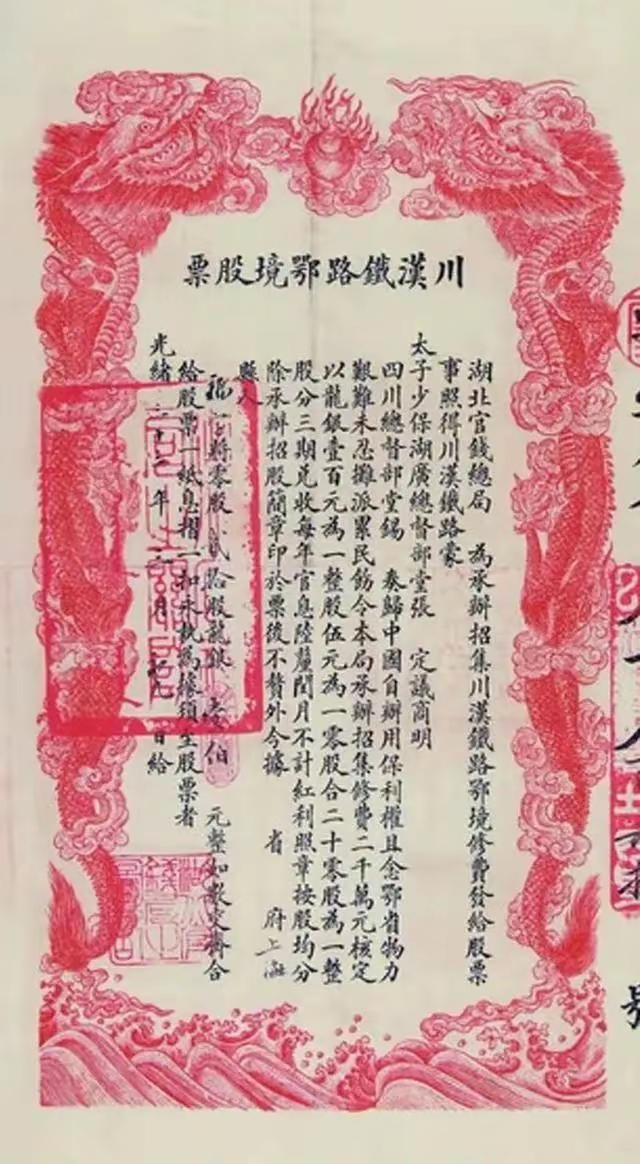 川漢鐵路鄂境股票
湖北官錢總局　為承辦招集川漢鐵路鄂境修費發給股票
事照得川漢鐵路蒙
太子少保湖廣總督部堂張　定議商明
四川總督部堂錫　奏歸中國自辦用保利權且念鄂省物力
艱難未忍攤派累民飭令本局承辦招集修費二千萬元核定
以龍銀壹百元為一整股伍元為一零股合二十零股為一整
股分三期兌收每年官息陸釐閏月不計紅利照章按股均分
除承辦招股簡章印於票後不贅外今據　省　府上海
縣人
將零股貳拾股龍銀壹伯　元整如數交齊合
給股票一紙息摺一扣永執為據須至股票者
光緒三十二年三月　日給
號